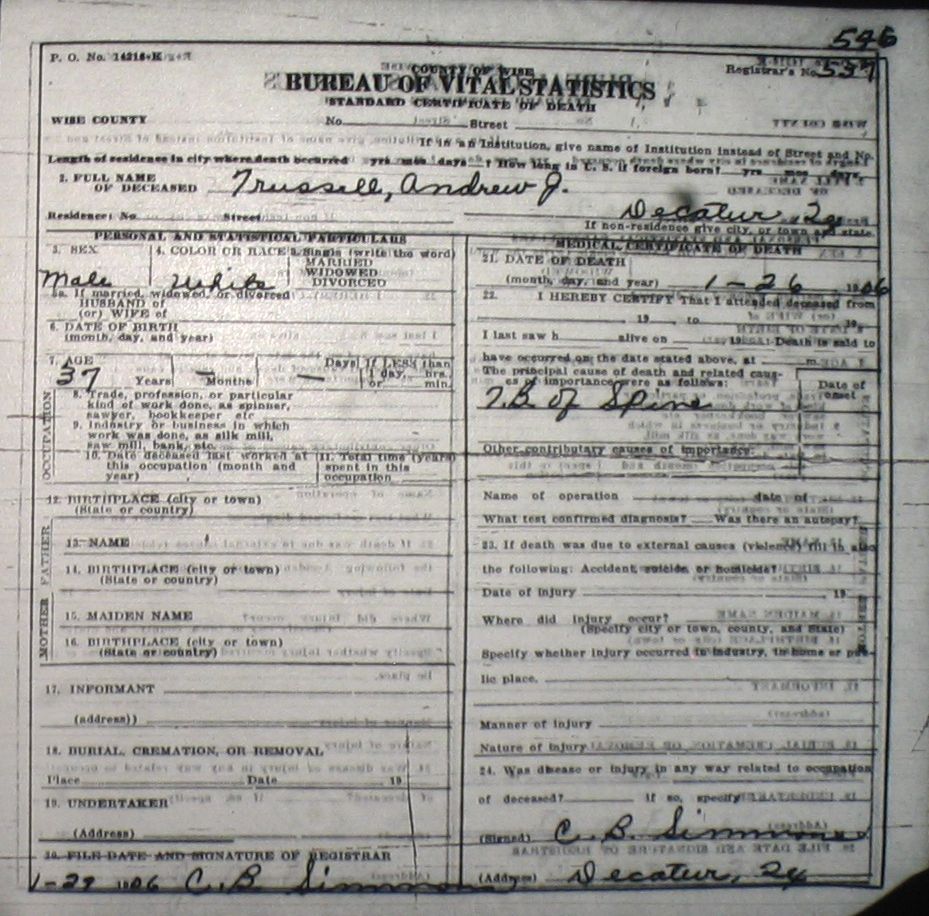 546
P. O. No. 14216-K
COUNTY OF WISE
Registrar's No. 537
BUREAU OF VITAL STATISTICS
STANDARD CERTIFICATE OF DEATH
WISE COUNTY No. Street
If in an Institution, give name of Institution instead of Street and No.
Length of residence in city where death occurred yrs mos days ? How long in U. S. if foreign born? yrs mos days
2. FULL NAME OF DECEASED Trussell, Andrew J.
Residence: No. Street Decatur, Tex
If non-residence give city, or town and state
PERSONAL AND STATISTICAL PARTICULARS
3. SEX 4. COLOR OR RACE 5. Single (write the word)
MARRIED
WIDOWED
DIVORCED
Male White
5a. If married, widowed, or divorced
HUSBAND of
(or) WIFE of
6. DATE OF BIRTH
(month, day, and year)
7. AGE Days If LESS than
37 Years — Months — 1 day, hrs.
or min.
OCCUPATION
8. Trade, profession, or particular
kind of work done, as spinner,
sawyer, bookkeeper etc
9. Industry or business in which
work was done, as silk mill,
saw mill, bank, etc.
10. Date deceased last worked at
this occupation (month and
year)
11. Total time (years)
spent in this
occupation
12. BIRTHPLACE (city or town)
(State or country)
FATHER
13. NAME
14. BIRTHPLACE (city or town)
(State or country)
MOTHER
15. MAIDEN NAME
16. BIRTHPLACE (city or town)
(State or country)
17. INFORMANT
(address))
18. BURIAL, CREMATION, OR REMOVAL
Place Date 19
19. UNDERTAKER
(Address)
20. FILE DATE AND SIGNATURE OF REGISTRAR
1-29 1906 C. B. Simmons
MEDICAL CERTIFICATE OF DEATH
21. DATE OF DEATH
(month, day, and year) 1-26 1906
22. I HEREBY CERTIFY That I attended deceased from
19 , to 19
I last saw h alive on 19 : Death is said to
have occurred on the date stated above, at m.
The principal cause of death and related caus-
es of importance were as follows:
Date of
onset
T.B. of Spine
Other contributary causes of importance:
Name of operation date of
What test confirmed diagnosis? Was there an autopsy?
23. If death was due to external causes (violence) fill in also
the following: Accident, suicide, or homicide?
Date of injury 19
Where did injury occur?
(Specify city or town, county, and State)
Specify whether injury occurred in industry, in home or pub-
lic place.
Manner of injury
Nature of injury
24. Was disease or injury in any way related to occupation
of deceased? If so, specify
(Signed) C. B. Simmons
(Address) Decatur, Tex